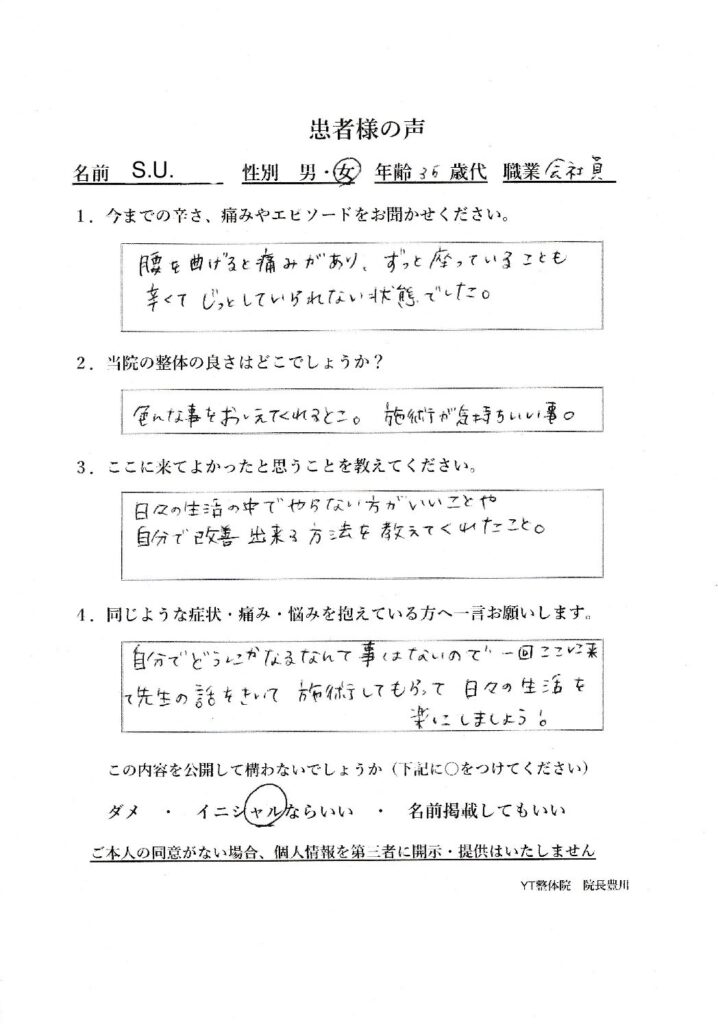 患者様の声
名前 S.U. 性別 男・女 年齢 35 歳代 職業 会社員
1．今までの辛さ、痛みやエピソードをお聞かせください。
腰を曲げると痛みがあり、ずっと座っていることも
辛くて じっとしていられない状態でした。
2．当院の整体の良さはどこでしょうか？
色んな事をおしえてくれるとこ。 施術が気持ちいい事。
3．ここに来てよかったと思うことを教えてください。
日々の生活の中でやらない方がいいことや
自分で改善出来る方法を教えてくれたこと。
4．同じような症状・痛み・悩みを抱えている方へ一言お願いします。
自分でどうにかなるなんて事はないので 一回ここに来
て先生の話をきいて 施術してもらって 日々の生活を
楽にしましょう！
この内容を公開して構わないでしょうか（下記に〇をつけてください）
ダメ ・ イニシャルならいい ・ 名前掲載してもいい
ご本人の同意がない場合、個人情報を第三者に開示・提供はいたしません
YT整体院 院長豊川